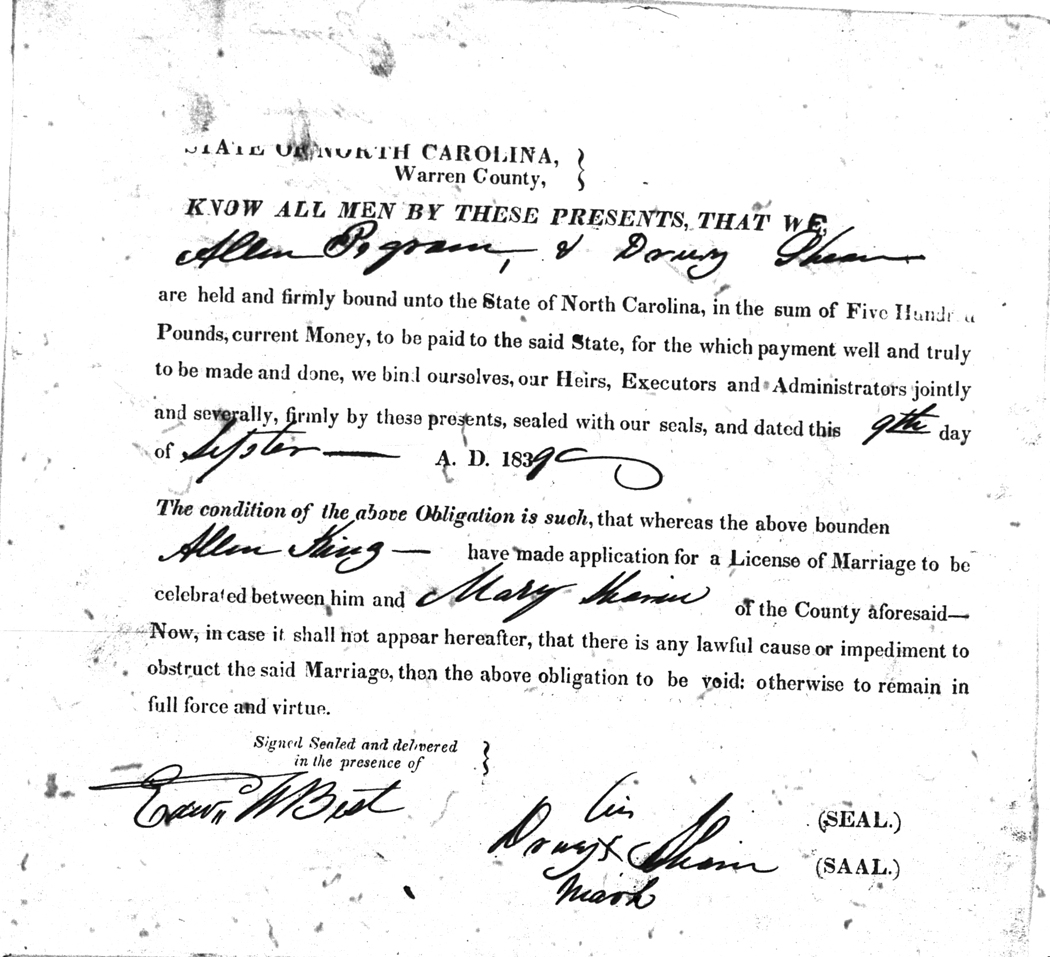 STATE OF NORTH CAROLINA,
Warren County,
KNOW ALL MEN BY THESE PRESENTS, THAT WE,
Allen Pegram, & Drury
are held and firmly bound unto the State of North Carolina, in the sum of Five Hundred
Pounds, current Money, to be paid to the said State, for the which payment well and truly
to be made and done, we bind ourselves, our Heirs, Executors and Administrators jointly
and severally, firmly by these presents, sealed with our seals, and dated this 9th day
of Septer A. D. 1839
The condition of the above Obligation is such, that whereas the above bounden
Allen King have made application for a License of Marriage to be
celebrated between him and Mary of the County aforesaid—
Now, in case it shall not appear hereafter, that there is any lawful cause or impediment to
obstruct the said Marriage, then the above obligation to be void: otherwise to remain in
full force and virtue.
Signed Sealed and delivered
in the presence of
Edwn W Best
his
(SEAL.)
Drury x
(SAAL.)
mark